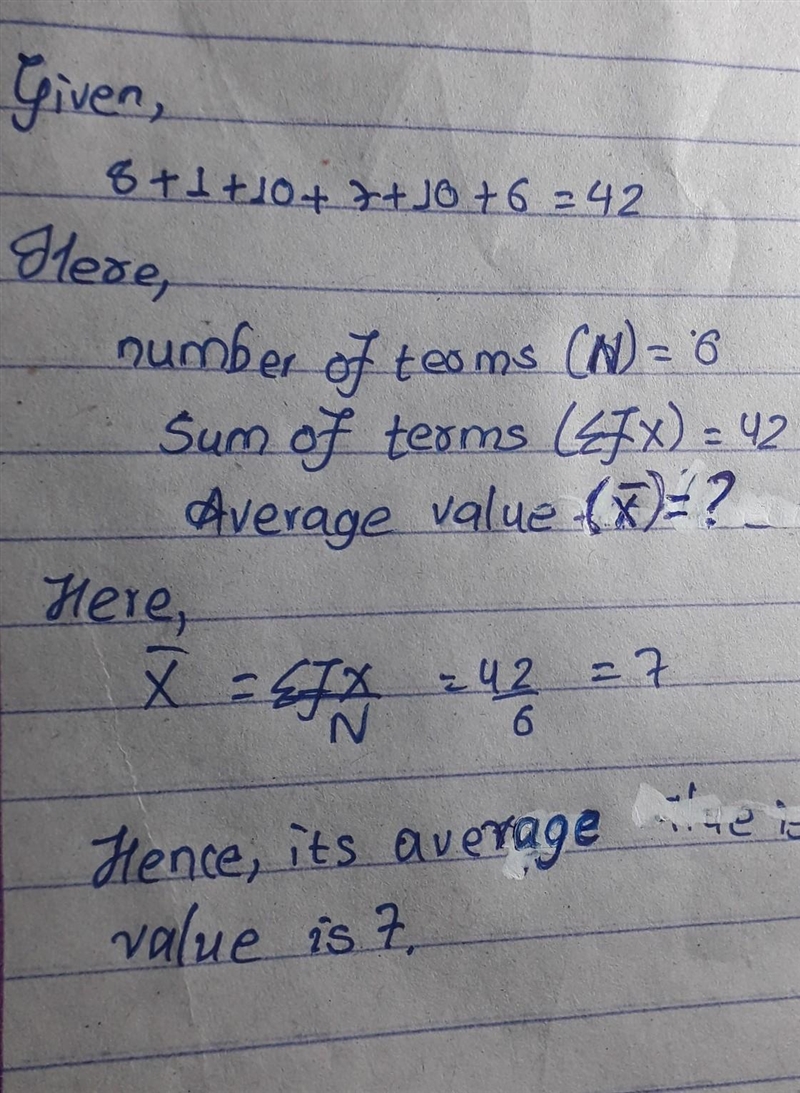 Given,
8+1+10+7+10+6=42
Here,
number of terms (N)= 6
Sum of terms (Σfx)=42
Average value (x̄)=?
Here,
X̄ = Σfx/N = 42/6 = 7
Hence, its average
value is 7.